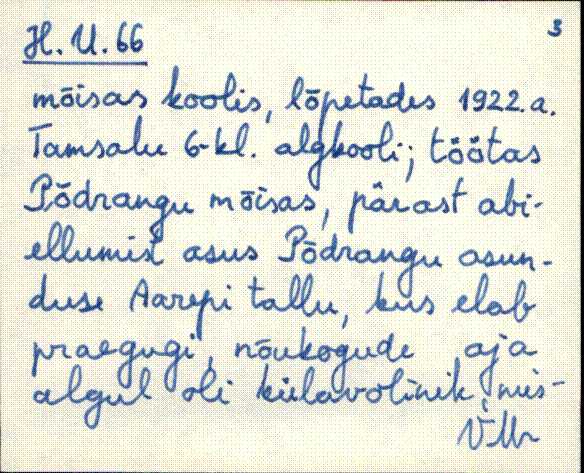 3
H. U. 66
mõisas koolis, lõpetades 1922. a.
Tamsalu 6-kl. algkooli; töötas
Põdrangu mõisas, pärast abi-
ellumist asus Põdrangu asun-
duse Aarepi tallu, kus elab
praegugi, nõukogude aja
algul oli külavolinik, mis-
V̄Mr